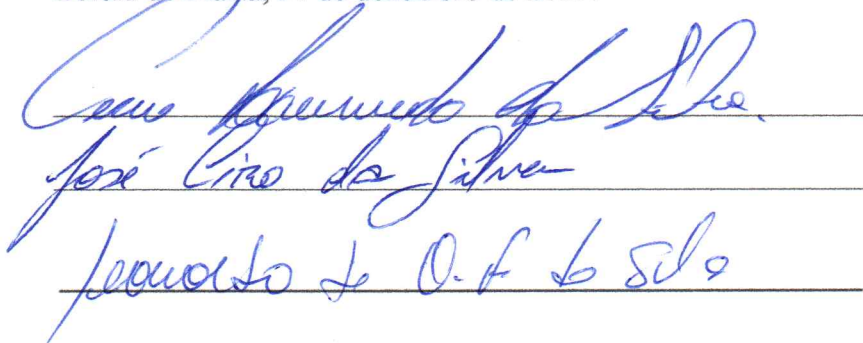 Raimundo da Silva.
José Ciro da Silva
Leonardo de O. F. da Silva